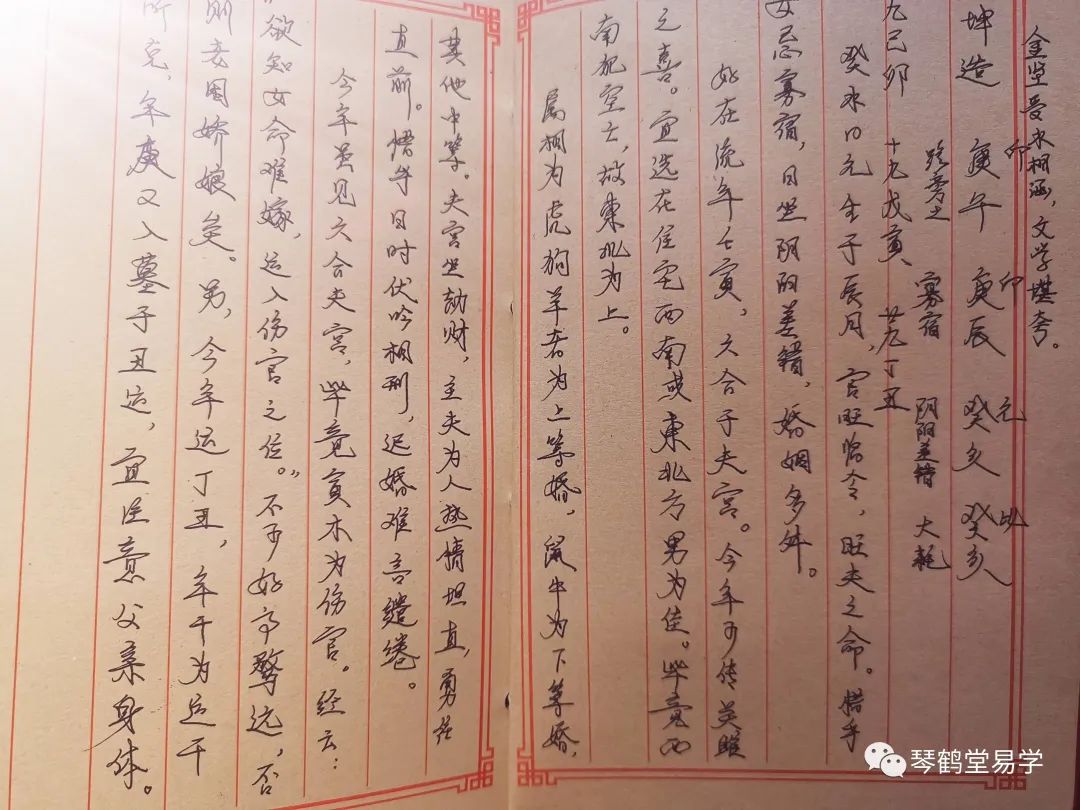 金坚受水相涵,文学堪夸。
印 印 元 比
坤造 庚午 庚辰 癸亥 癸亥
路旁土 寡宿 阴阳差错 大耗
九己卯 十九戊寅 廿九丁丑
癸水口元生于辰月,官旺临令,旺夫之命。惜乎
女忌寡宿,日坐阴阳差错,婚姻多舛。
好在流年壬寅,六合于夫宫。今年可传关雎
之喜。宜选在住宅西南或东北方男为佳。毕竟西
南犯空亡,故东北为上。
属相为虎狗羊者为上等婚,鼠牛为下等婚,
其他中等。夫宫坐劫财,主夫为人热情坦直,勇在
直前。惜乎日时伏吟相刑,迟婚难言缱绻。
今年虽见六合夫宫,毕竟寅木为伤官。经云:
“欲知女命难嫁,运入伤官之位。”不可好高骛远,否
则妾困娇娘矣。另,今年运丁丑,年干为运干
所克,年庚又入墓于丑运,宜注意父亲身体。
琴鹤堂易学